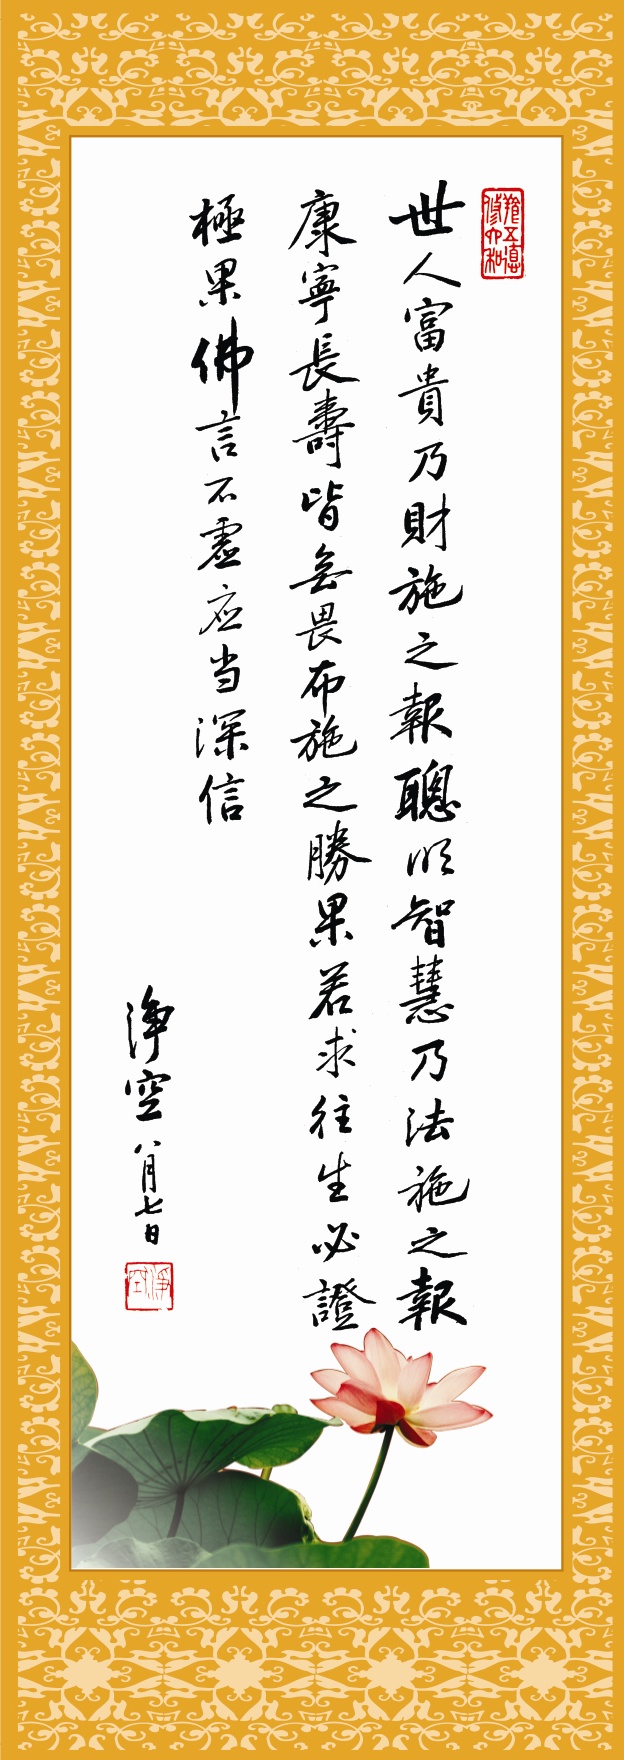 五德
修六和
世人富貴乃財施之報聰明智慧乃法施之報
康寧長壽皆無畏布施之勝果若求往生必證
極果佛言不虛应当深信
淨空 八月七日
淨空